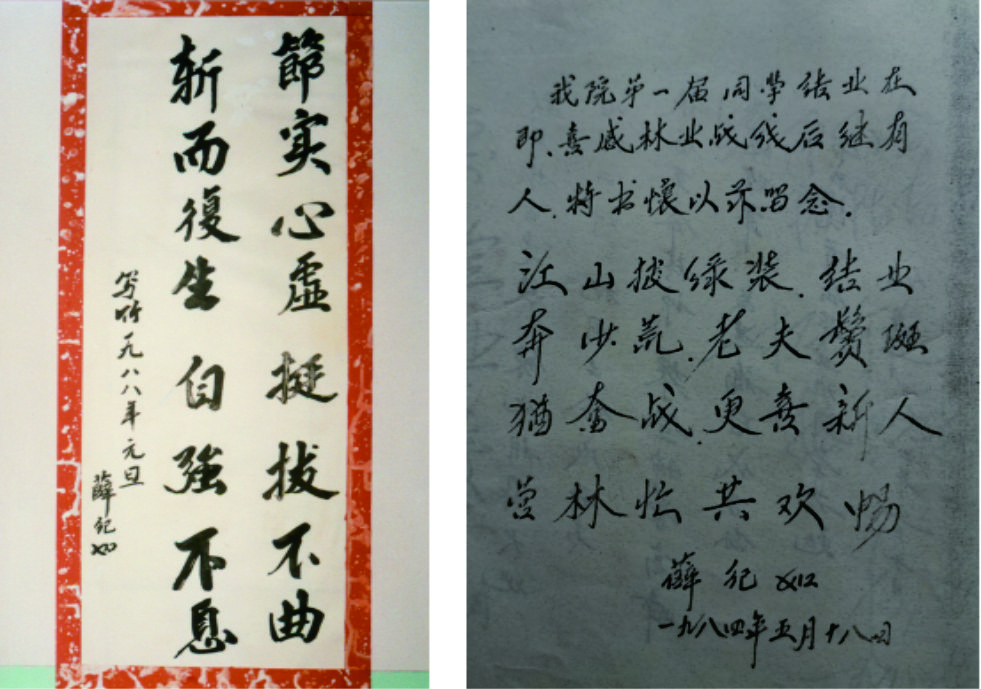 節实心虚 挺拔不曲
斩而復生 自強不息
写竹一九八八年元旦
薛纪如
我院第一届同學结业在
即.喜感林业战线后继有
人.特书怀以示留念.
江山披绿装.结业
奔沙荒.老夫鬓斑
猶奋战.更喜新人
营林忙共欢畅
薛纪如
一九八四年五月十八日